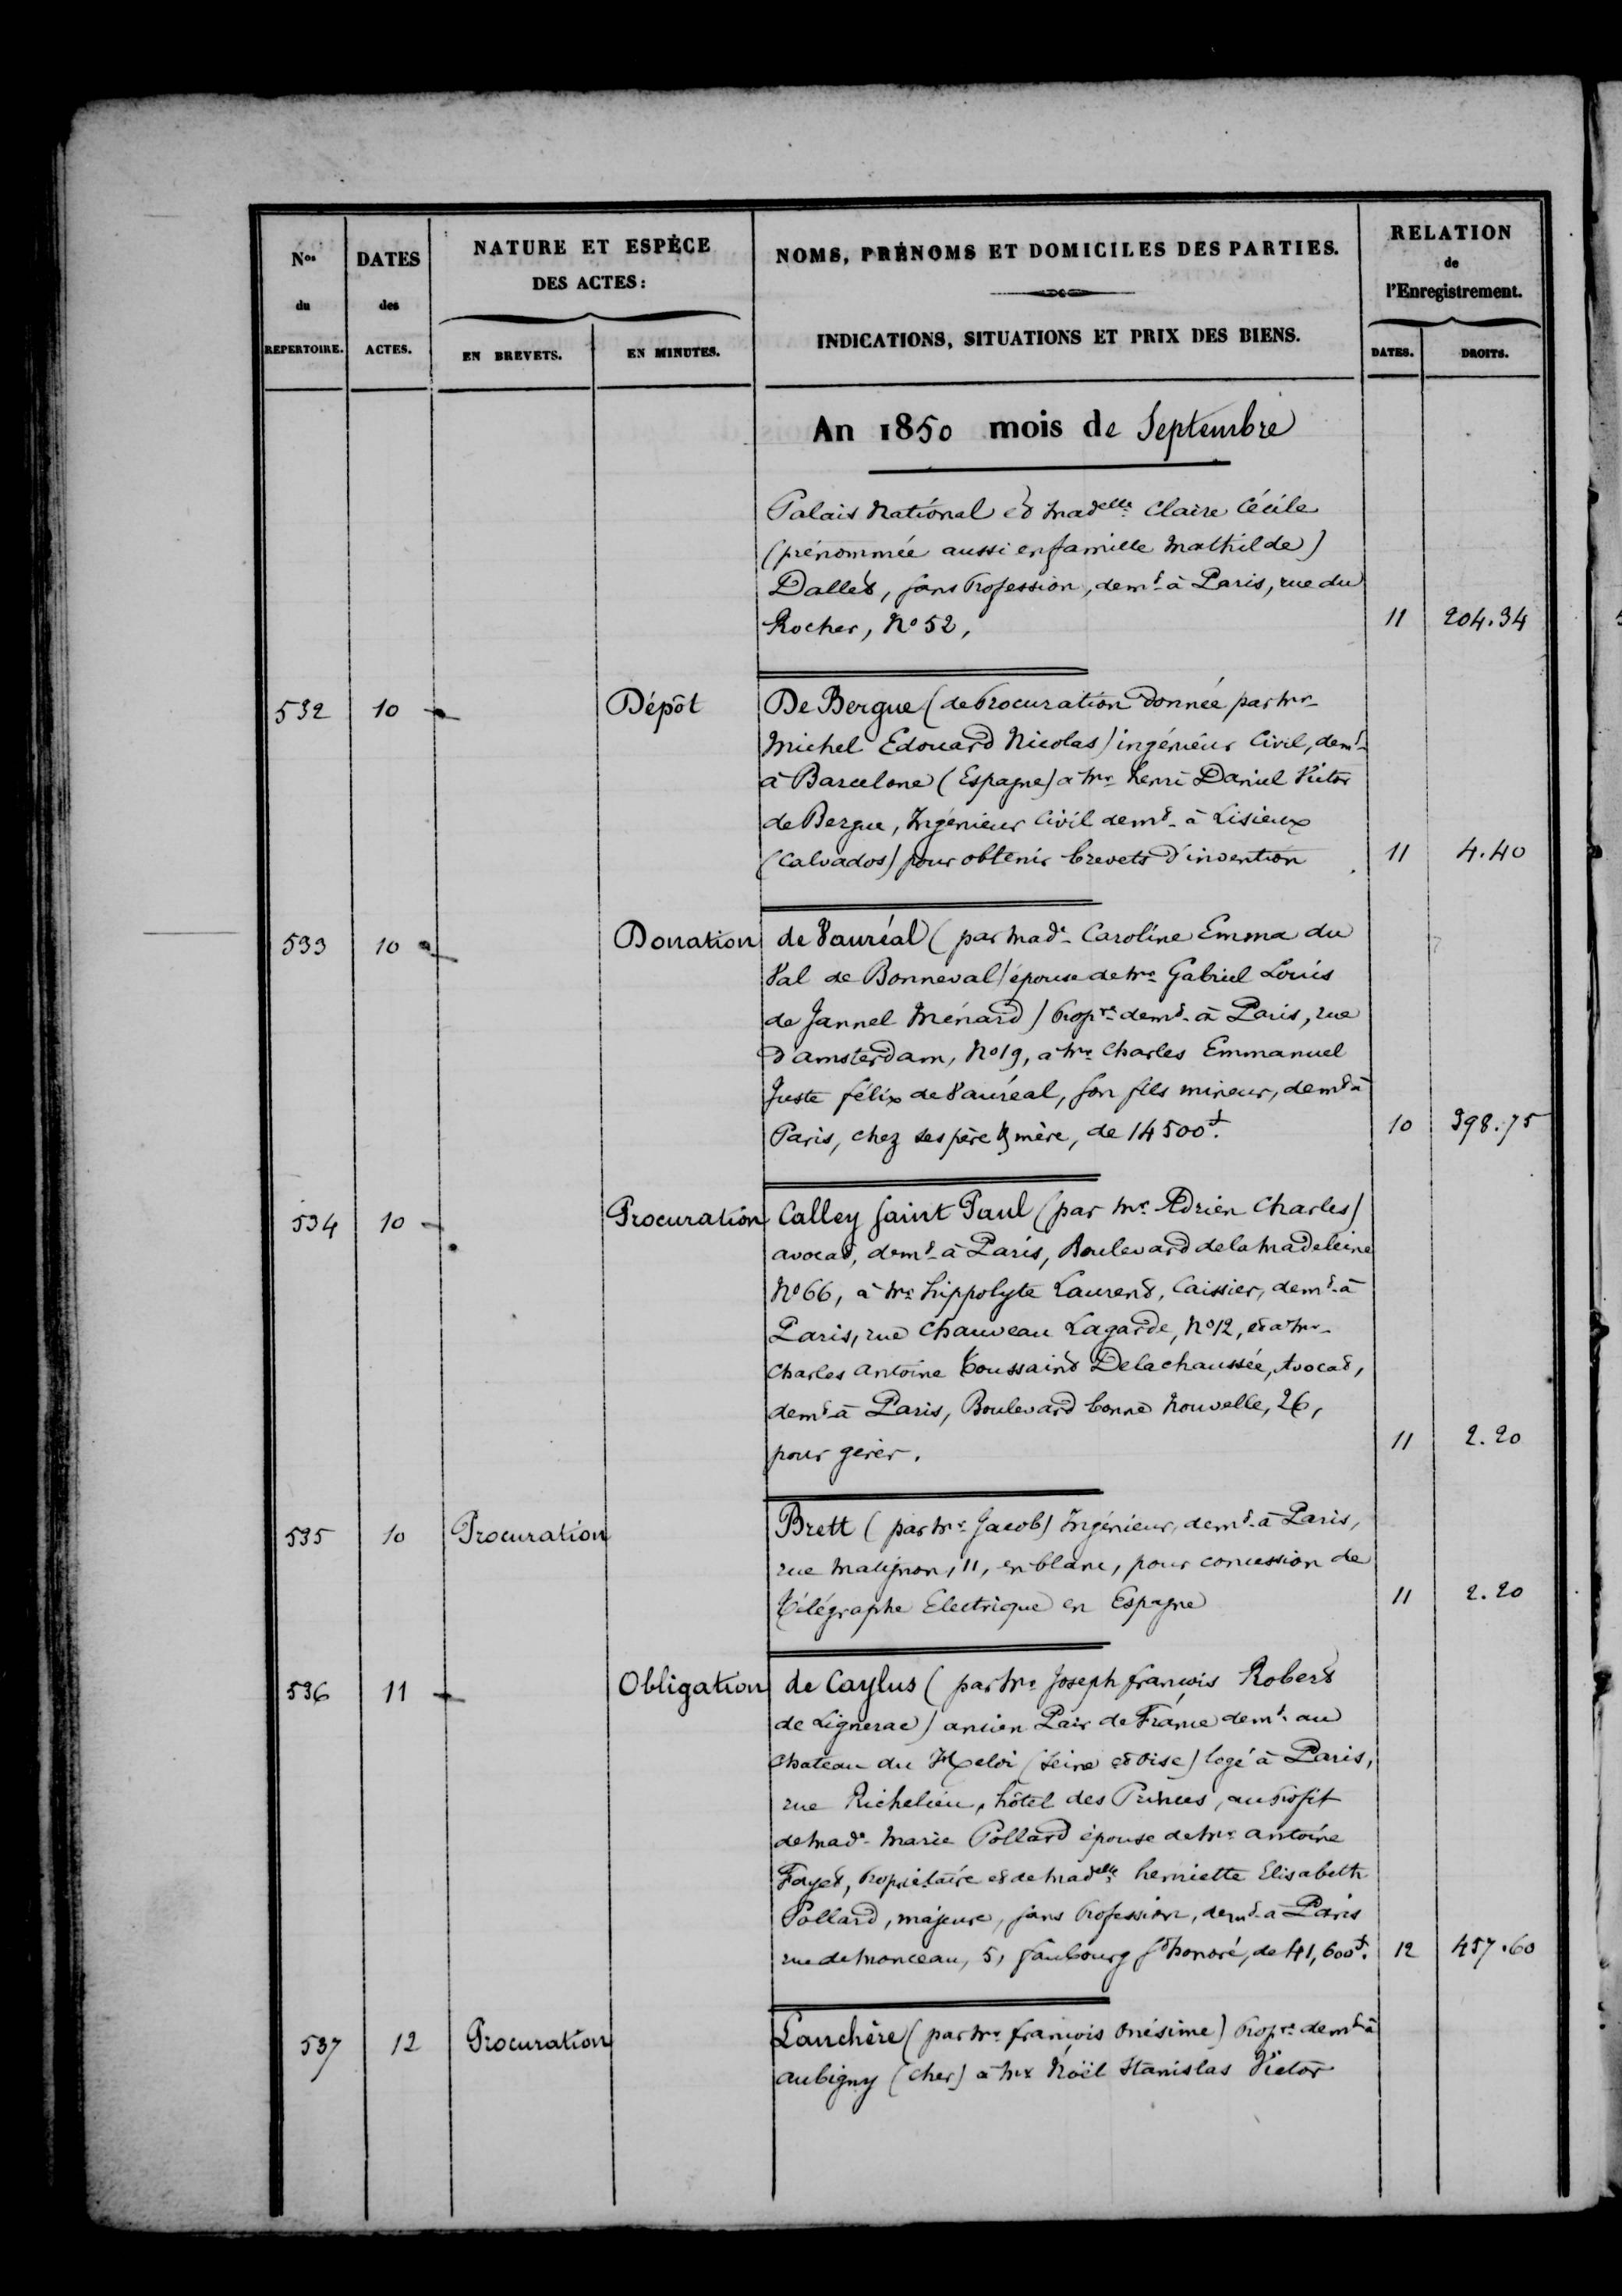 Nos du REPERTOIRE.
DATES des ACTES.
NATURE ET ESPÈCE DES ACTES:
EN BREVETS.
EN MINUTES.
NOMS, PRÉNOMS ET DOMICILES DES PARTIES.
INDICATIONS, SITUATIONS ET PRIX DES BIENS.
RELATION de l'Enregistrement.
DATES.
DROITS.
An 1850 mois de Septembre
Palais National et Madelle Claire Cécile
(prénommée aussi en famille Mathilde)
Dallet, sans Profession, demt à Paris, rue du
Rocher, No 52, 11 204.34
532 10 Dépôt De Bergue (de Procuration donnée par Mr
Michel Edouard Nicolas) ingénieur Civil, demt
à Barcelone (Espagne) à Mr henri Daniel Victor
de Bergue, Ingénieur Civil demt à Lisieux
(Calvados) pour obtenir brevets d'invention 11 4.40
533 10 Donation de Vauréal (par Made Caroline Emma du
Val de Bonneval (épouse de Mr Gabriel Louis
de Jannel Ménard) Propre demt à Paris, rue
d'amsterdam, No 19, à Mr Charles Emmanuel
Juste félix de Vauréal, son fils mineur, demt à
Paris, chez ses père & mère, de 14500f. 10 398.75
534 10 Procuration Calley Saint Paul (par Mr Adrien Charles)
avocat, demt à Paris, Boulevard de la Madeleine
No 66, à Mr hippolyte Laurent, Caissier, demt à
Paris, rue Chauveau Lagarde, No 12, et à Mr
Charles Antoine Toussaint Delachaussée, Avocat,
demt à Paris, Boulevard bonne Nouvelle, 26,
pour gérer. 11 2.20
535 10 Procuration Brett (par Mr Jacob) Ingénieur, demt à Paris,
rue Matignon, 11, en blanc, pour concession de
Télégraphe Electrique en Espagne 11 2.20
536 11 Obligation de Caylus (par Mr Joseph françois Robert
de Lignerac) ancien Pair de France demt au
Chateau du (Seine et Oise) logé à Paris,
rue Richelieu, hôtel des Princes, au Profit
de Made Marie Pollard épouse de Mr antoine
Fayet, Propriétaire et de Madelle henriette Elisabeth
Pollard, majeure, sans Profession, demt à Paris
rue de Monceau, 5, faubourg St honoré, de 41,600f. 12 457.60
537 12 Procuration Lauchère (par Mr françois Onésime) Propre demt à
aubigny (Cher) à Mr Noël Stanislas Victor